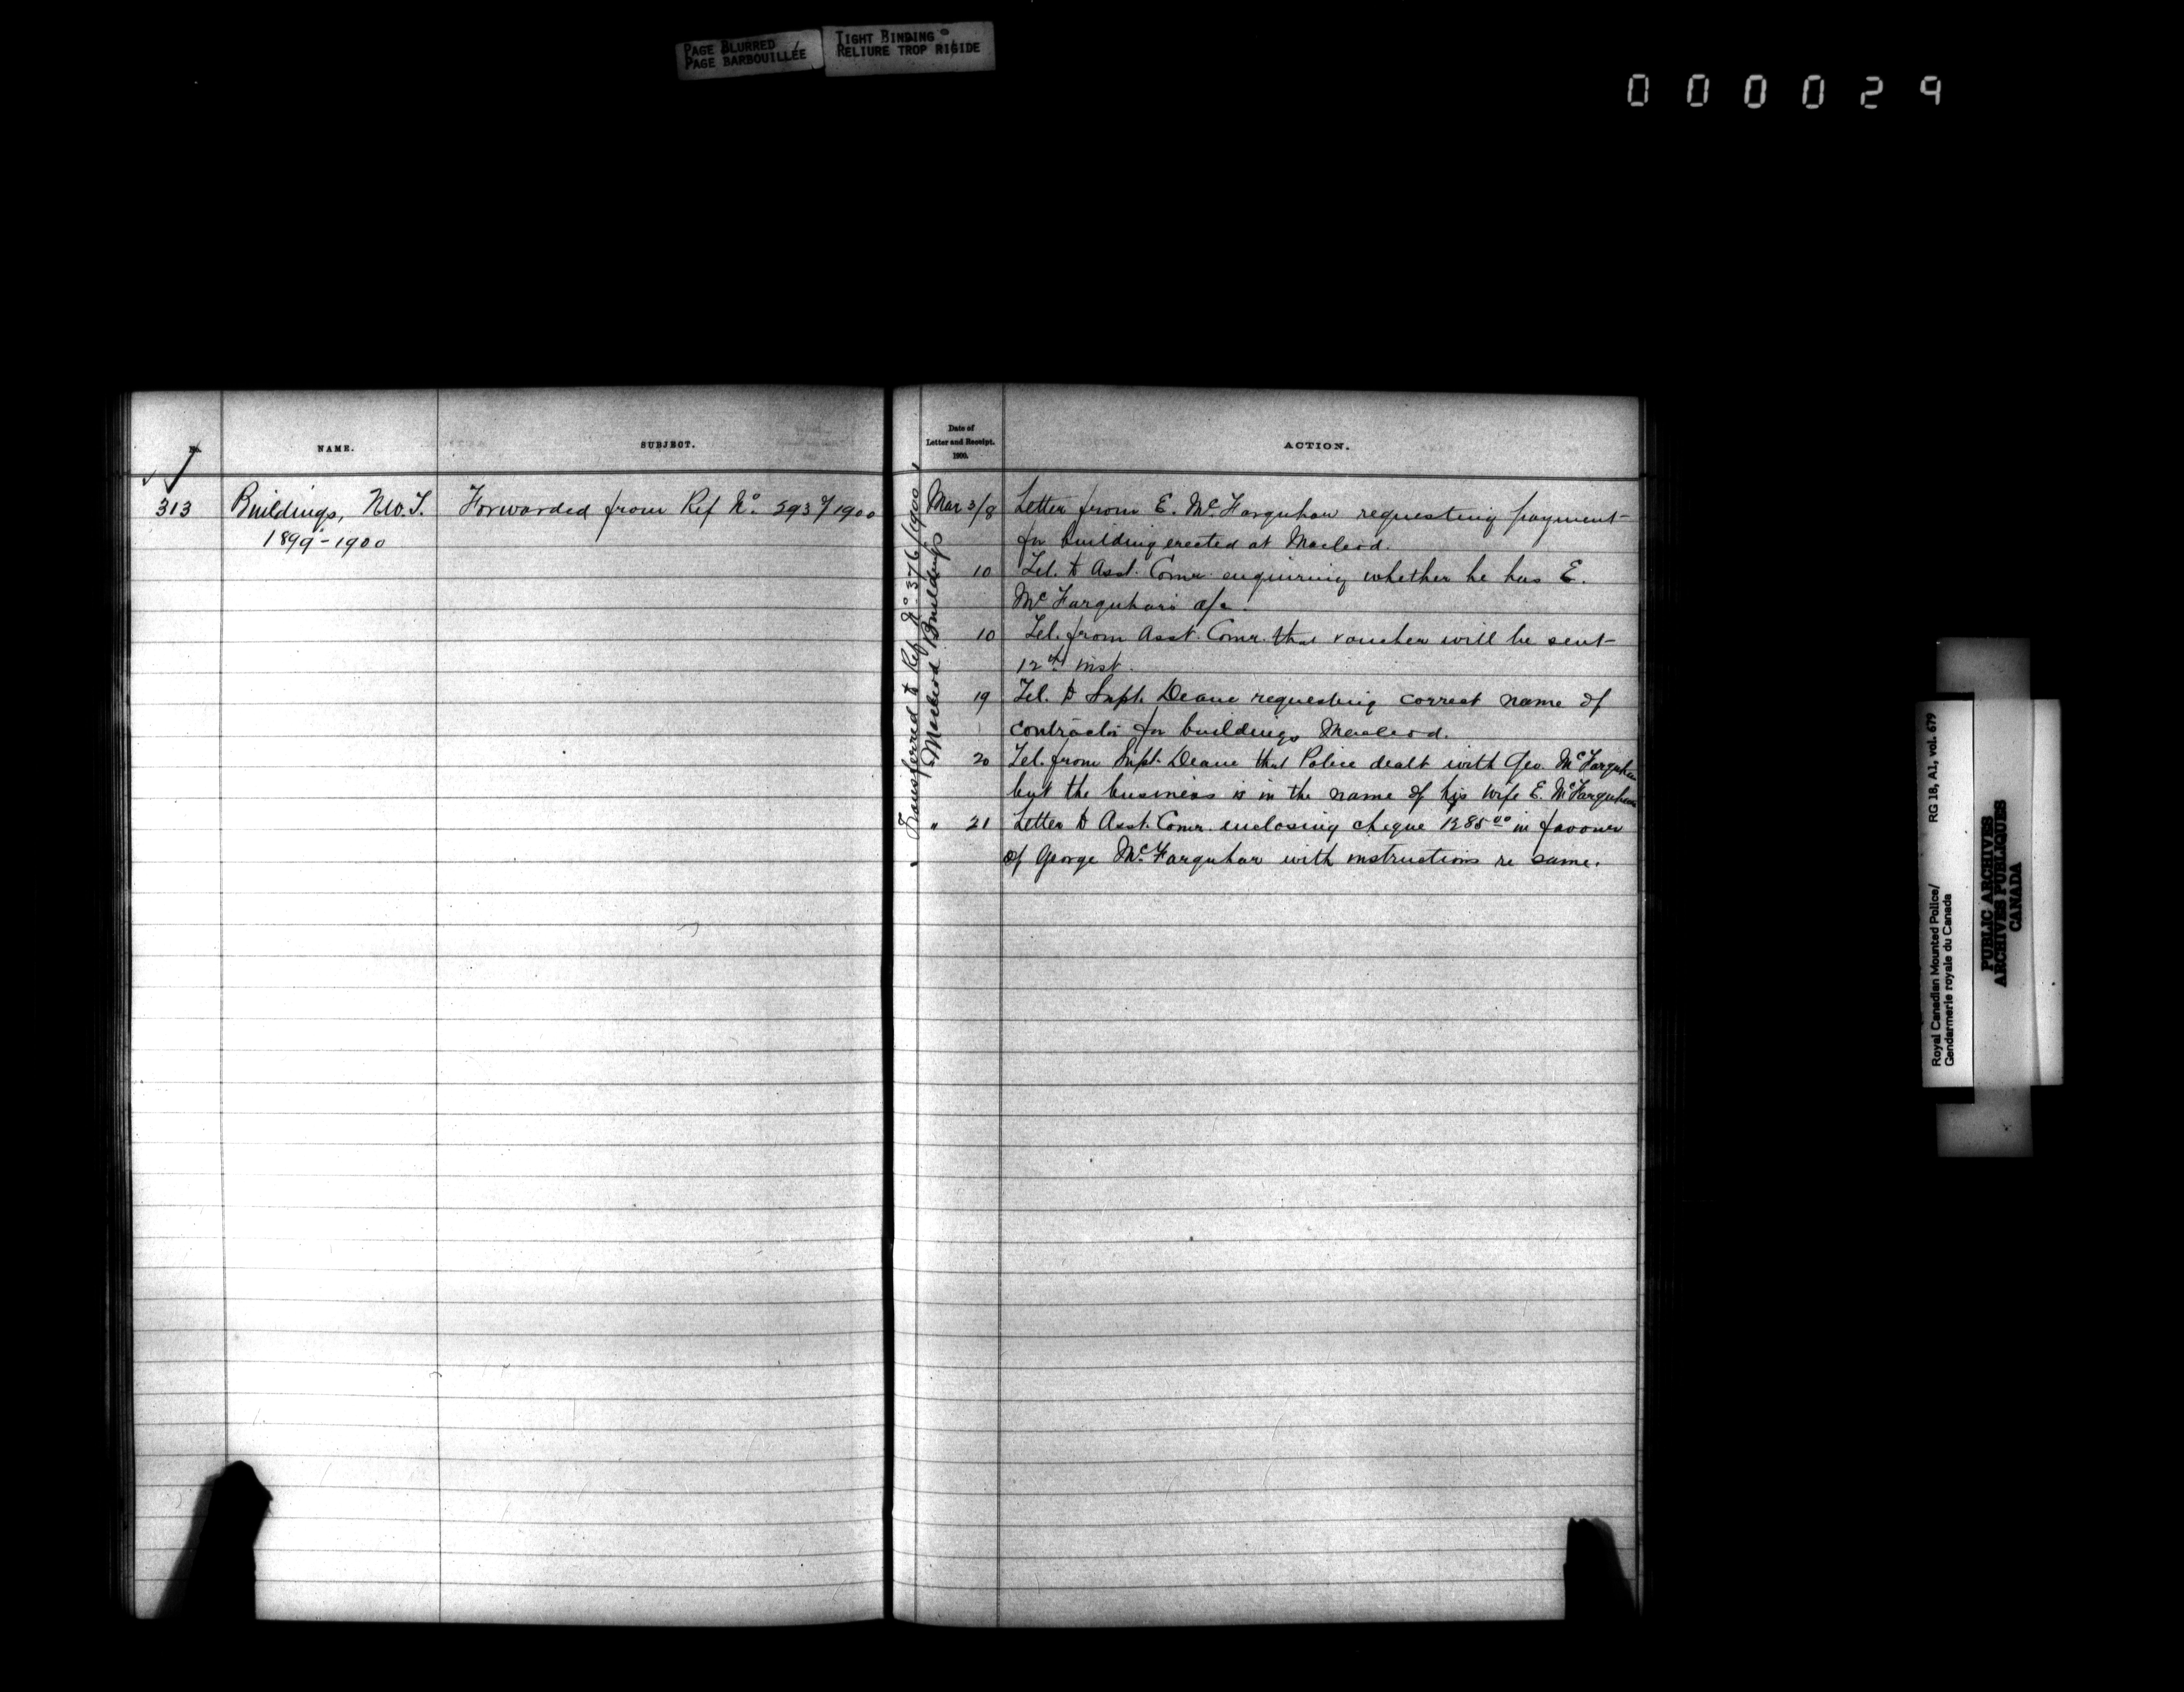 PAGE BLURRED
PAGE BARBOUILLÉE
TIGHT BINDING
RELIURE TROP RIGIDE
000029
No.
NAME.
SUBJECT.
313
Buildings, N.W.T.
1899-1900
Forwarded from Ref No. 293/1900
Transferred to Ref No. 376/1900
"Macleod Buildings
Date of
Letter and Receipt.
1900.
ACTION.
Mar 3/8 Letter from E. McFarquhar requesting payment
for building erected at Macleod.
10 Tel. to Asst. Comr. enquiring whether he has E.
McFarquhar's a/c.
10 Tel. from Asst. Comr. that voucher will be sent
12th inst.
19 Tel. to Supt. Deane requesting correct name of
contractor for buildings Macleod.
20 Tel. from Supt. Deane that Police dealt with Geo. McFarquhar
but the business is in the name of his wife E. McFarquhar
" 21 Letter to Asst. Comr. enclosing cheque 1285.00 in favour
of George McFarquhar with instructions re same.
Royal Canadian Mounted Police/ RG 18, A1, vol. 679
Gendarmerie royale du Canada
PUBLIC ARCHIVES
ARCHIVES PUBLIQUES
CANADA